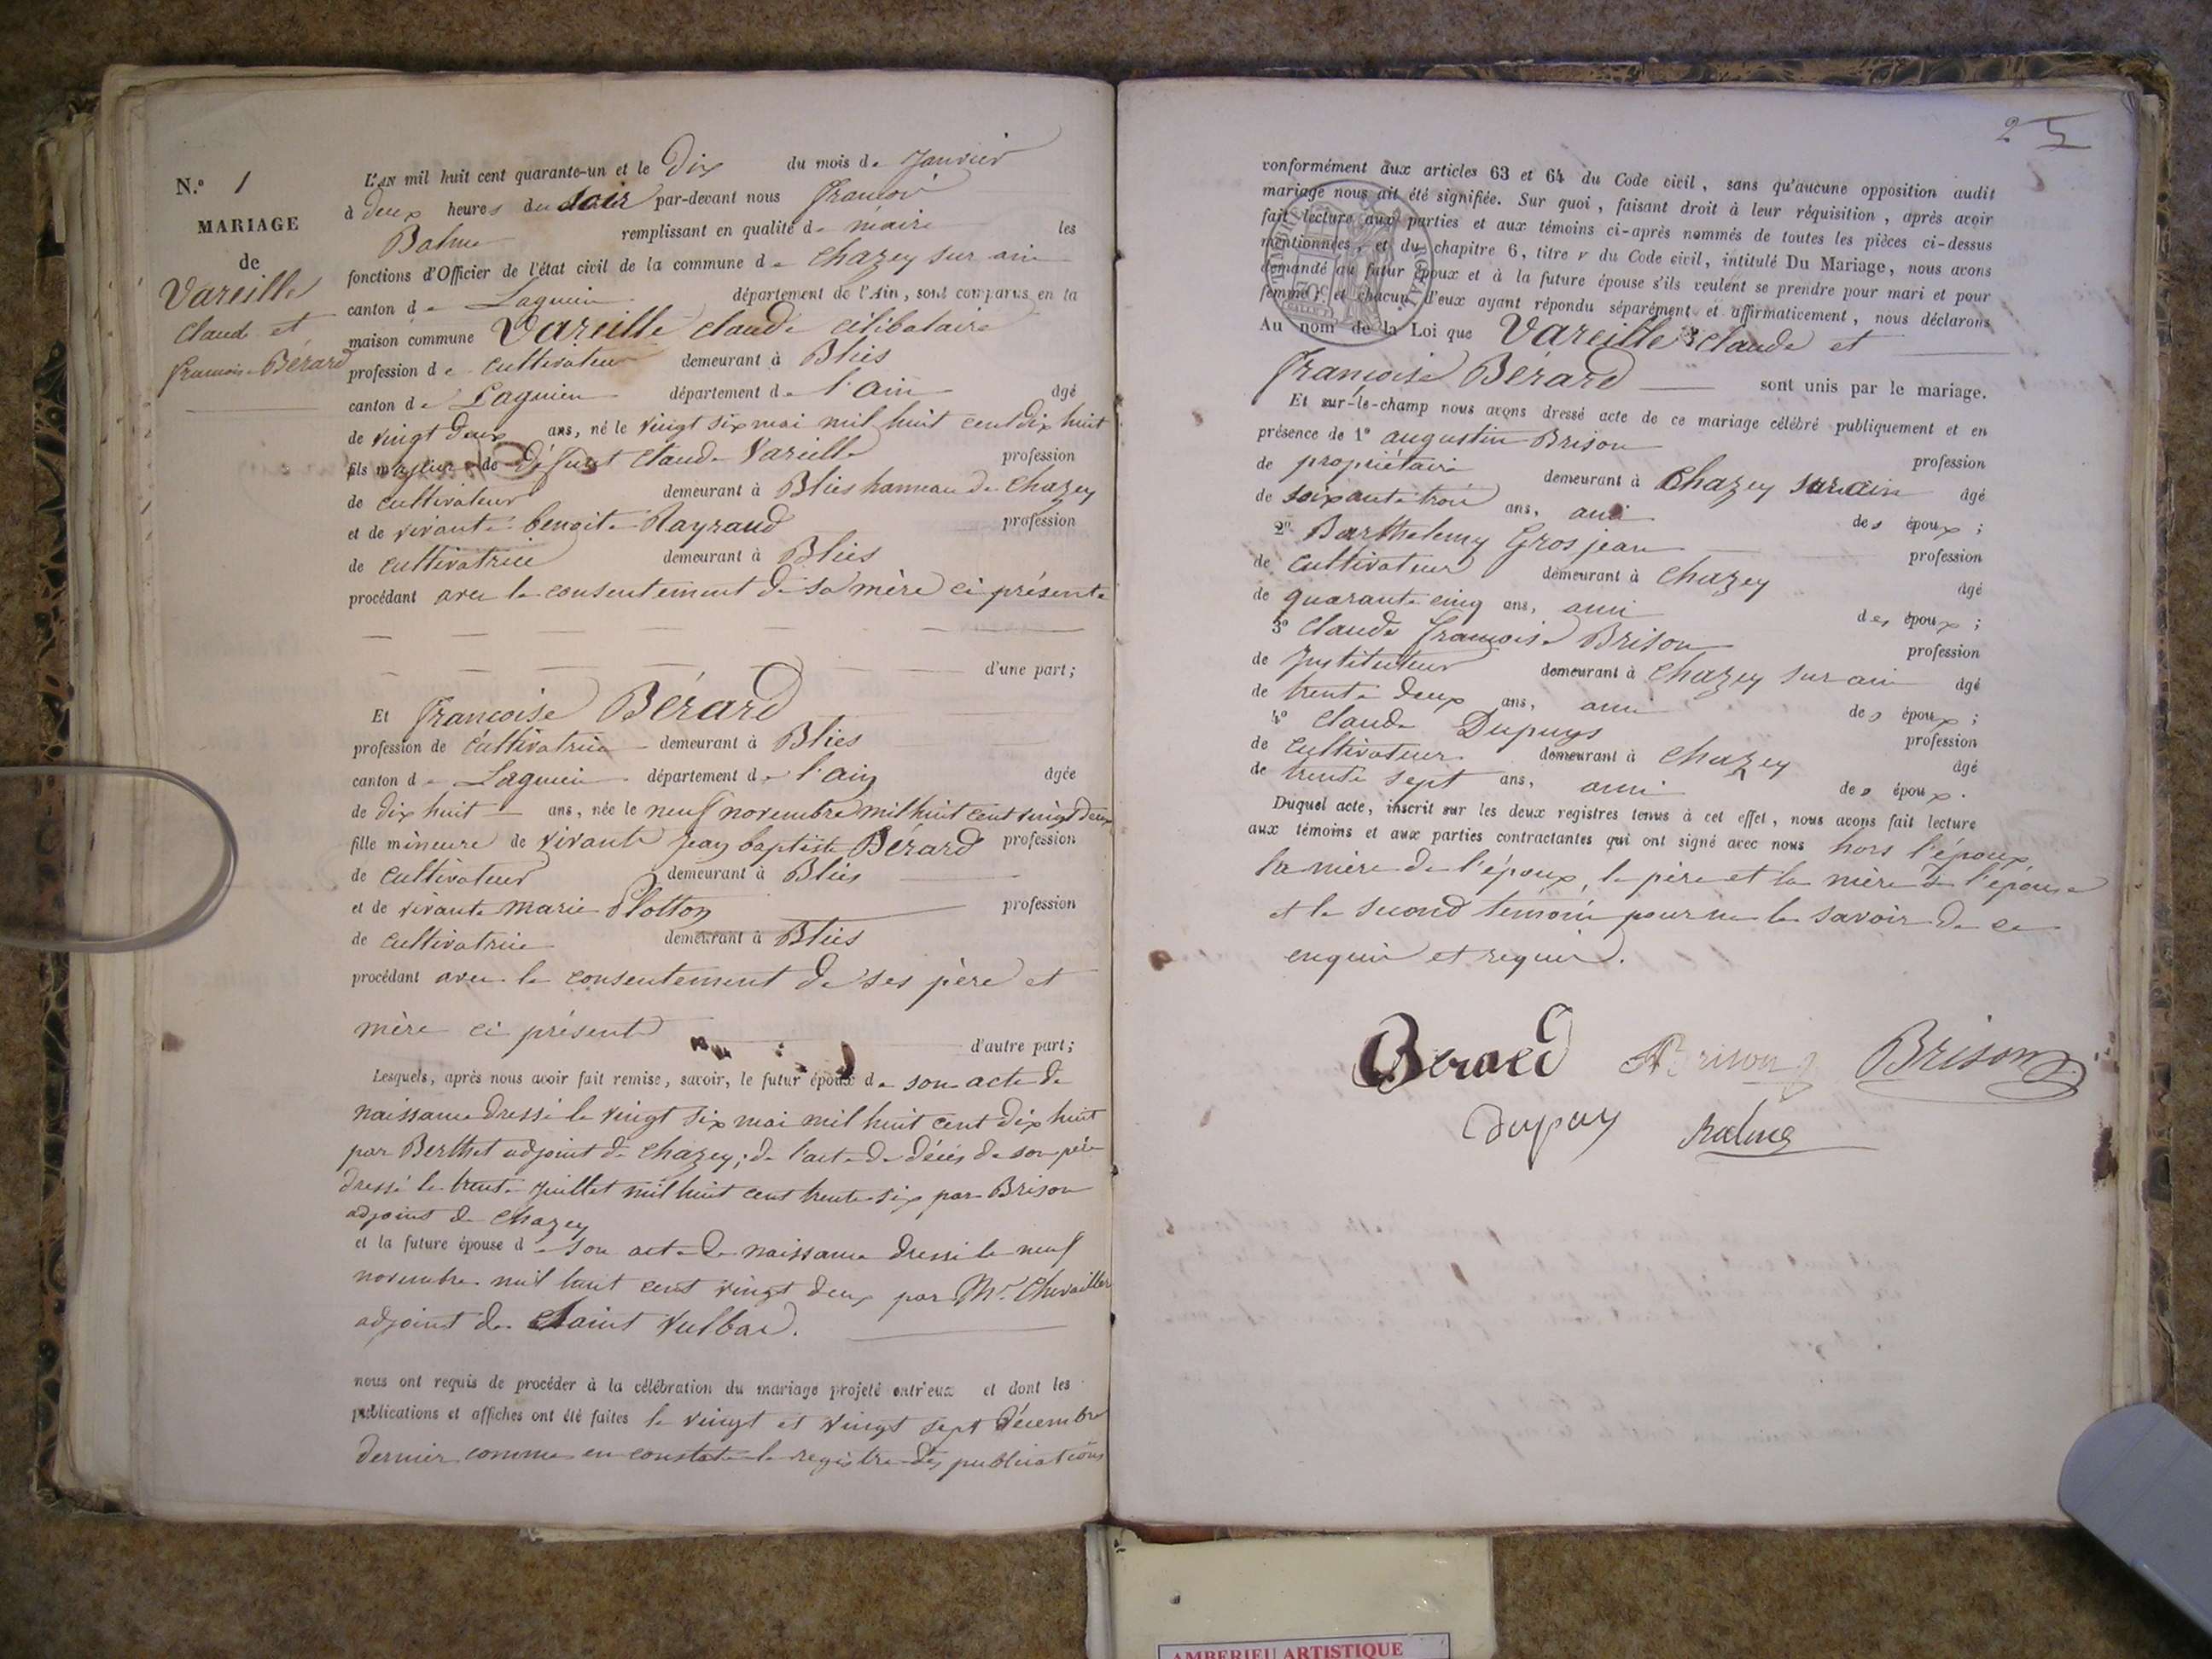 N.° 1
MARIAGE
de
Vareille
Claude et
Francoise Bérard
L'AN mil huit cent quarante-un et le Dix du mois de Janvier
à deux heures du soir par-devant nous francois
Balme remplissant en qualité de maire les
fonctions d'Officier de l'état civil de la commune de Chazey sur ain
canton de Lagnieu département de l'Ain, sont comparus en la
maison commune Vareille claude célibataire
profession de cultivateur demeurant à Blies
canton de Lagnieu département de l'ain âgé
de vingt deux ans, né le vingt six mai mil huit cent dix huit
fils majeur de défunt Claude Vareille profession
de cultivateur demeurant à Blies hameau de Chazey
et de vivante benoite Rayraud profession
de cultivatrice demeurant à Blies
procédant avec le consentement de sa mère ci présente
d'une part;
Et françoise Bérard
profession de cultivatrice demeurant à Blies
canton de Lagnieu département de l'ain âgée
de dix huit ans, née le neuf novembre mil huit cent vingt deux
fille mineure de vivante jean baptiste Bérard profession
de cultivateur demeurant à Blies
et de vivante marie Plotton profession
de cultivatrice demeurant à Blies
procédant avec le consentement de ses père et
mère ci présent
d'autre part;
Lesquels, après nous avoir fait remise, savoir, le futur époux de son acte de
naissance dressé le vingt six mai mil huit cent dix huit
par Berthet adjoint de Chazey; de l'acte de décès de son père
dressé le trente juillet mil huit cent trente six par Brison
adjoint de Chazey
et la future épouse de son acte de naissance dressé le neuf
novembre mil huit cent vingt deux par Mr. Chevaillier
adjoint de Saint Vulbas.
nous ont requis de procéder à la célébration du mariage projeté entr'eux et dont les
publications et affiches ont été faites le vingt et vingt sept décembre
dernier comme en constate le registre des publications
2
conformément aux articles 63 et 64 du Code civil, sans qu'aucune opposition audit
mariage nous ait été signifiée. Sur quoi, faisant droit à leur réquisition, après avoir
fait lecture aux parties et aux témoins ci-après nommés de toutes les pièces ci-dessus
mentionnées, et du chapitre 6, titre v du Code civil, intitulé Du Mariage, nous avons
demandé au futur époux et à la future épouse s'ils veulent se prendre pour mari et pour
femme; et chacun d'eux ayant répondu séparément et affirmativement, nous déclarons
Au nom de la Loi que Vareille claude et
françoise Bérard sont unis par le mariage.
Et sur-le-champ nous avons dressé acte de ce mariage célébré publiquement et en
présence de 1° augustin Brison profession
de propriétaire demeurant à Chazey sur ain âgé
de soixante trois ans, ami des époux;
2° Barthelemy Grosjean profession
de cultivateur demeurant à Chazey âgé
de quarante cinq ans, ami des époux;
3° Claude françois Brison profession
de Instituteur demeurant à Chazey sur ain âgé
de trente deux ans, ami des époux;
4° Claude Dupuys profession
de cultivateur demeurant à Chazey âgé
de trente sept ans, ami des époux.
Duquel acte, inscrit sur les deux registres tenus à cet effet, nous avons fait lecture
aux témoins et aux parties contractantes qui ont signé avec nous hors l'époux,
la mère de l'époux, le père et la mère de l'épouse
et le second témoin pour ne le savoir de ce
enquis et requis.
Berard Brison Brison
Dupuy Balme
AMBERIEU ARTISTIQUE